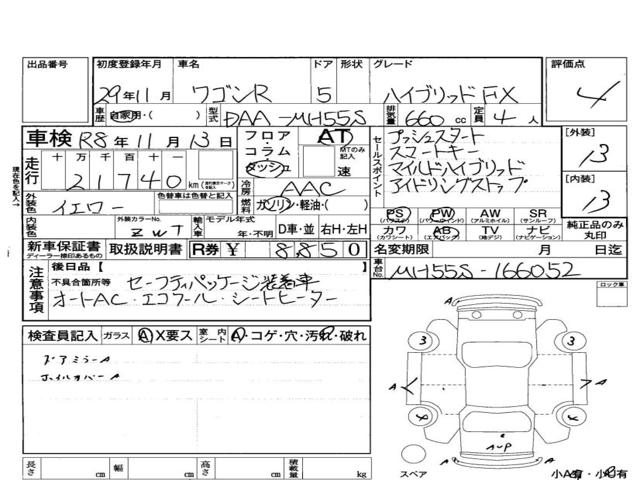 出品番号 初度登録年月 車名 ドア 形状 グレード 評価点
29年11月 ワゴンR 5 ハイブリッドFX 4
車歴 自家用・( ) 型式 DAA-MH55S 排気量 660 cc 定員 4 人
車検 R8年11月13日 フロア・コラム・ダッシュ AT MTのみ記入 速
セールスポイント プッシュスタート
スマートキー
マイルドハイブリッド
アイドリングストップ
[外装] 13
[内装] 13
現在色を記入→
走行 十 万 千 百 十 一
21740 km
冷房 AAC
外装色 イエロー 色替車は色替と記入 燃料 ガソリン・軽油・( )
PS (パワステ) PW (パワーウインド) AW (アルミホイル) SR (サンルーフ)
カワ (カワシート) AB (エアバック) TV (地デジ) ナビ (ナビゲーション)
純正品のみ丸印
内装色 外装カラーNo. ZWT 輸入車 モデル年式 年・不明 D車・並 右H・左H
新車保証書 ディーラー捺印あるもの 取扱説明書 R券 ¥ 8850
名変期限 月 日迄
車台No. MH55S-166052
注意事項 後日品[ ]
不具合箇所等 セーフティパッケージ装着車
オートAC・エコクール・シートヒーター
ロック車
検査員記入 ガラス A X要ス 室内シート A・コゲ・穴・汚れ・破れ
ドアミラーA
ホイルカバーA
3 3
A A
4 4
スペア
長さ cm 幅 cm 高さ cm 積載量 kg
小A有・小U有